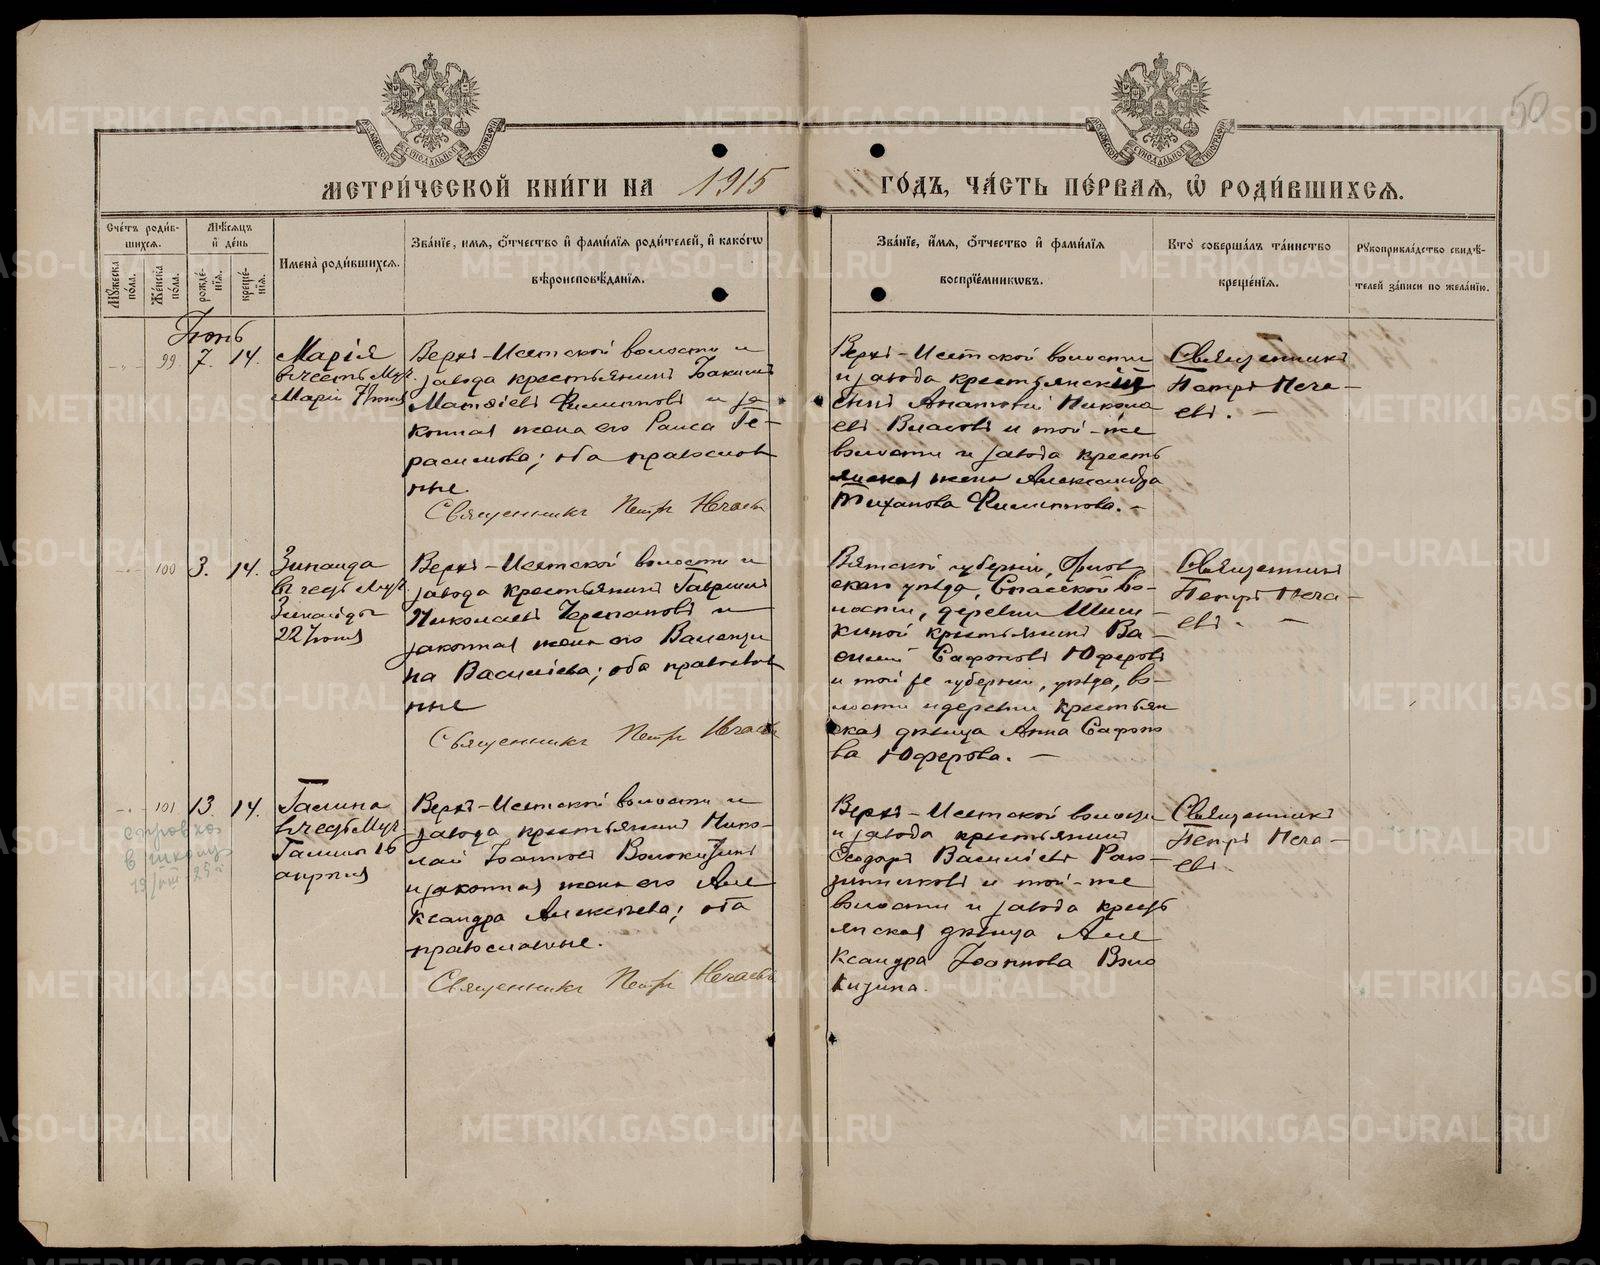 50
МЕТРИ́ЧЕСКОЙ КНИ́ГИ НА 1915 ГО́ДЪ, ЧА́СТЬ ПЕ́РВАЯ, Ѡ РОДИ́ВШИХСЯ.
Сче́тъ роди́в-
шихся.
Мꙋ́жеска по́ла.
Же́нска по́ла.
Мѣ́сяцъ
и҆ де́нь
рожде́-
нїя.
креще́-
нїя.
Имена̀ роди́вшихся.
Зва́нїе, и҆́мя, ѻ҆́тчество и҆ фами́лїя роди́телей, и҆ како́гѡ
вѣроисповѣ́данїя.
Зва́нїе, и҆́мя, ѻ҆́тчество и҆ фами́лїя
воспрїе́мникѡвъ.
Кто̀ соверша́лъ та́инство
креще́нїя.
Рꙋкоприкла́дство свидѣ́-
телей за́писи по жела́нїю.
Іюнь
99 7. 14.
Марія
въ честь Муч.
Маріи 7 Іюня
Верхъ-Исетской волости и
завода крестьянинъ Іоакимъ
Матѳіевъ Филипповъ и за
конная жена его Раиса Ге-
расимова; оба православ
ные.
Священникъ Петръ Нечаевъ
Верхъ-Исетской волости
и завода крестьянскій
сынъ Анатолій Никола
евъ Власовъ и той-же
волости и завода кресть
янская жена Александра
Тиханова Филиппова. -
Священникъ
Петръ Неча-
евъ. -
100 3. 14.
Зинаида
въ честь Муч
Зинаиды
22 Іюня
Верхъ-Исетской волости и
завода крестьянинъ Гавріилъ
Николаевъ Черепановъ и
законная жена его Валенти
на Василіева; оба православ
ные
Священникъ Петръ Нечаевъ
Вятской губерніи, Орлов
скаго уѣзда, Спасской во-
лости, деревни
крестьянинъ Ва-
силій Сафоновъ Юферовъ
и той же губерніи, уѣзда, во-
лости и деревни крестьян
ская дѣвица Анна Сафоно
ва Юферова. -
Священникъ
Петръ Неча-
евъ. -
101 13. 14.
Галина
въ честь Муч
Галины 16
апрѣля
Верхъ-Исетской волости и
завода крестьянинъ Нико-
лай Іоанновъ Волокитинъ
и законная жена его Але
ксандра Алексѣева; оба
православные.
Священникъ Петръ Нечаевъ
Верхъ-Исетской волости
и завода крестьянинъ
Ѳеодоръ Василіевъ
и той-же
волости и завода кресть
янская дѣвица Але
ксандра Іоаннова Воло
китина.
Священникъ
Петръ Неча-
евъ.
METRIKI.GASO-URAL.RU